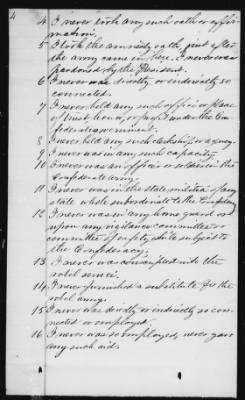 4
4 I never took any such oath or affir-
mation.
5 I took the amnesty oath, just after
the army came in here. I never was
pardoned by the President.
6 I never was directly or indirectly so
connected.
7 I never held any such office or place
of trust, honor, or profit under the Con-
federate government.
8 I never held any such clerkship, or agency.
9 I never was in any such capacity
10 I never was an officer or soldier in the
Confederate army.
11 I never was in the state militia of any
state while subordinate to the Confederacy
12 I never was in any home guard or
upon any vigilance committee or
committee of safety, while subject to
the Confederacy.
13 I never was conscripted into the
rebel service.
14 I never furnished a substitute for the
rebel army.
15 I never was directly or indirectly so con-
nected or employed.
16 I never was so employed, never gave
any such aid.